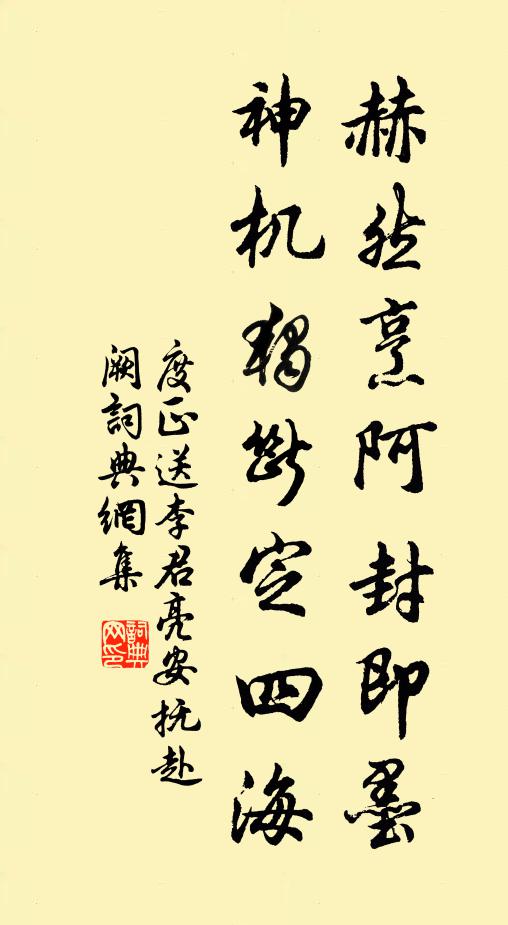 赫然烹阿封即墨
神机独断定四海
度正送李君亮安抚赴
阙詞典網集
詞典網印